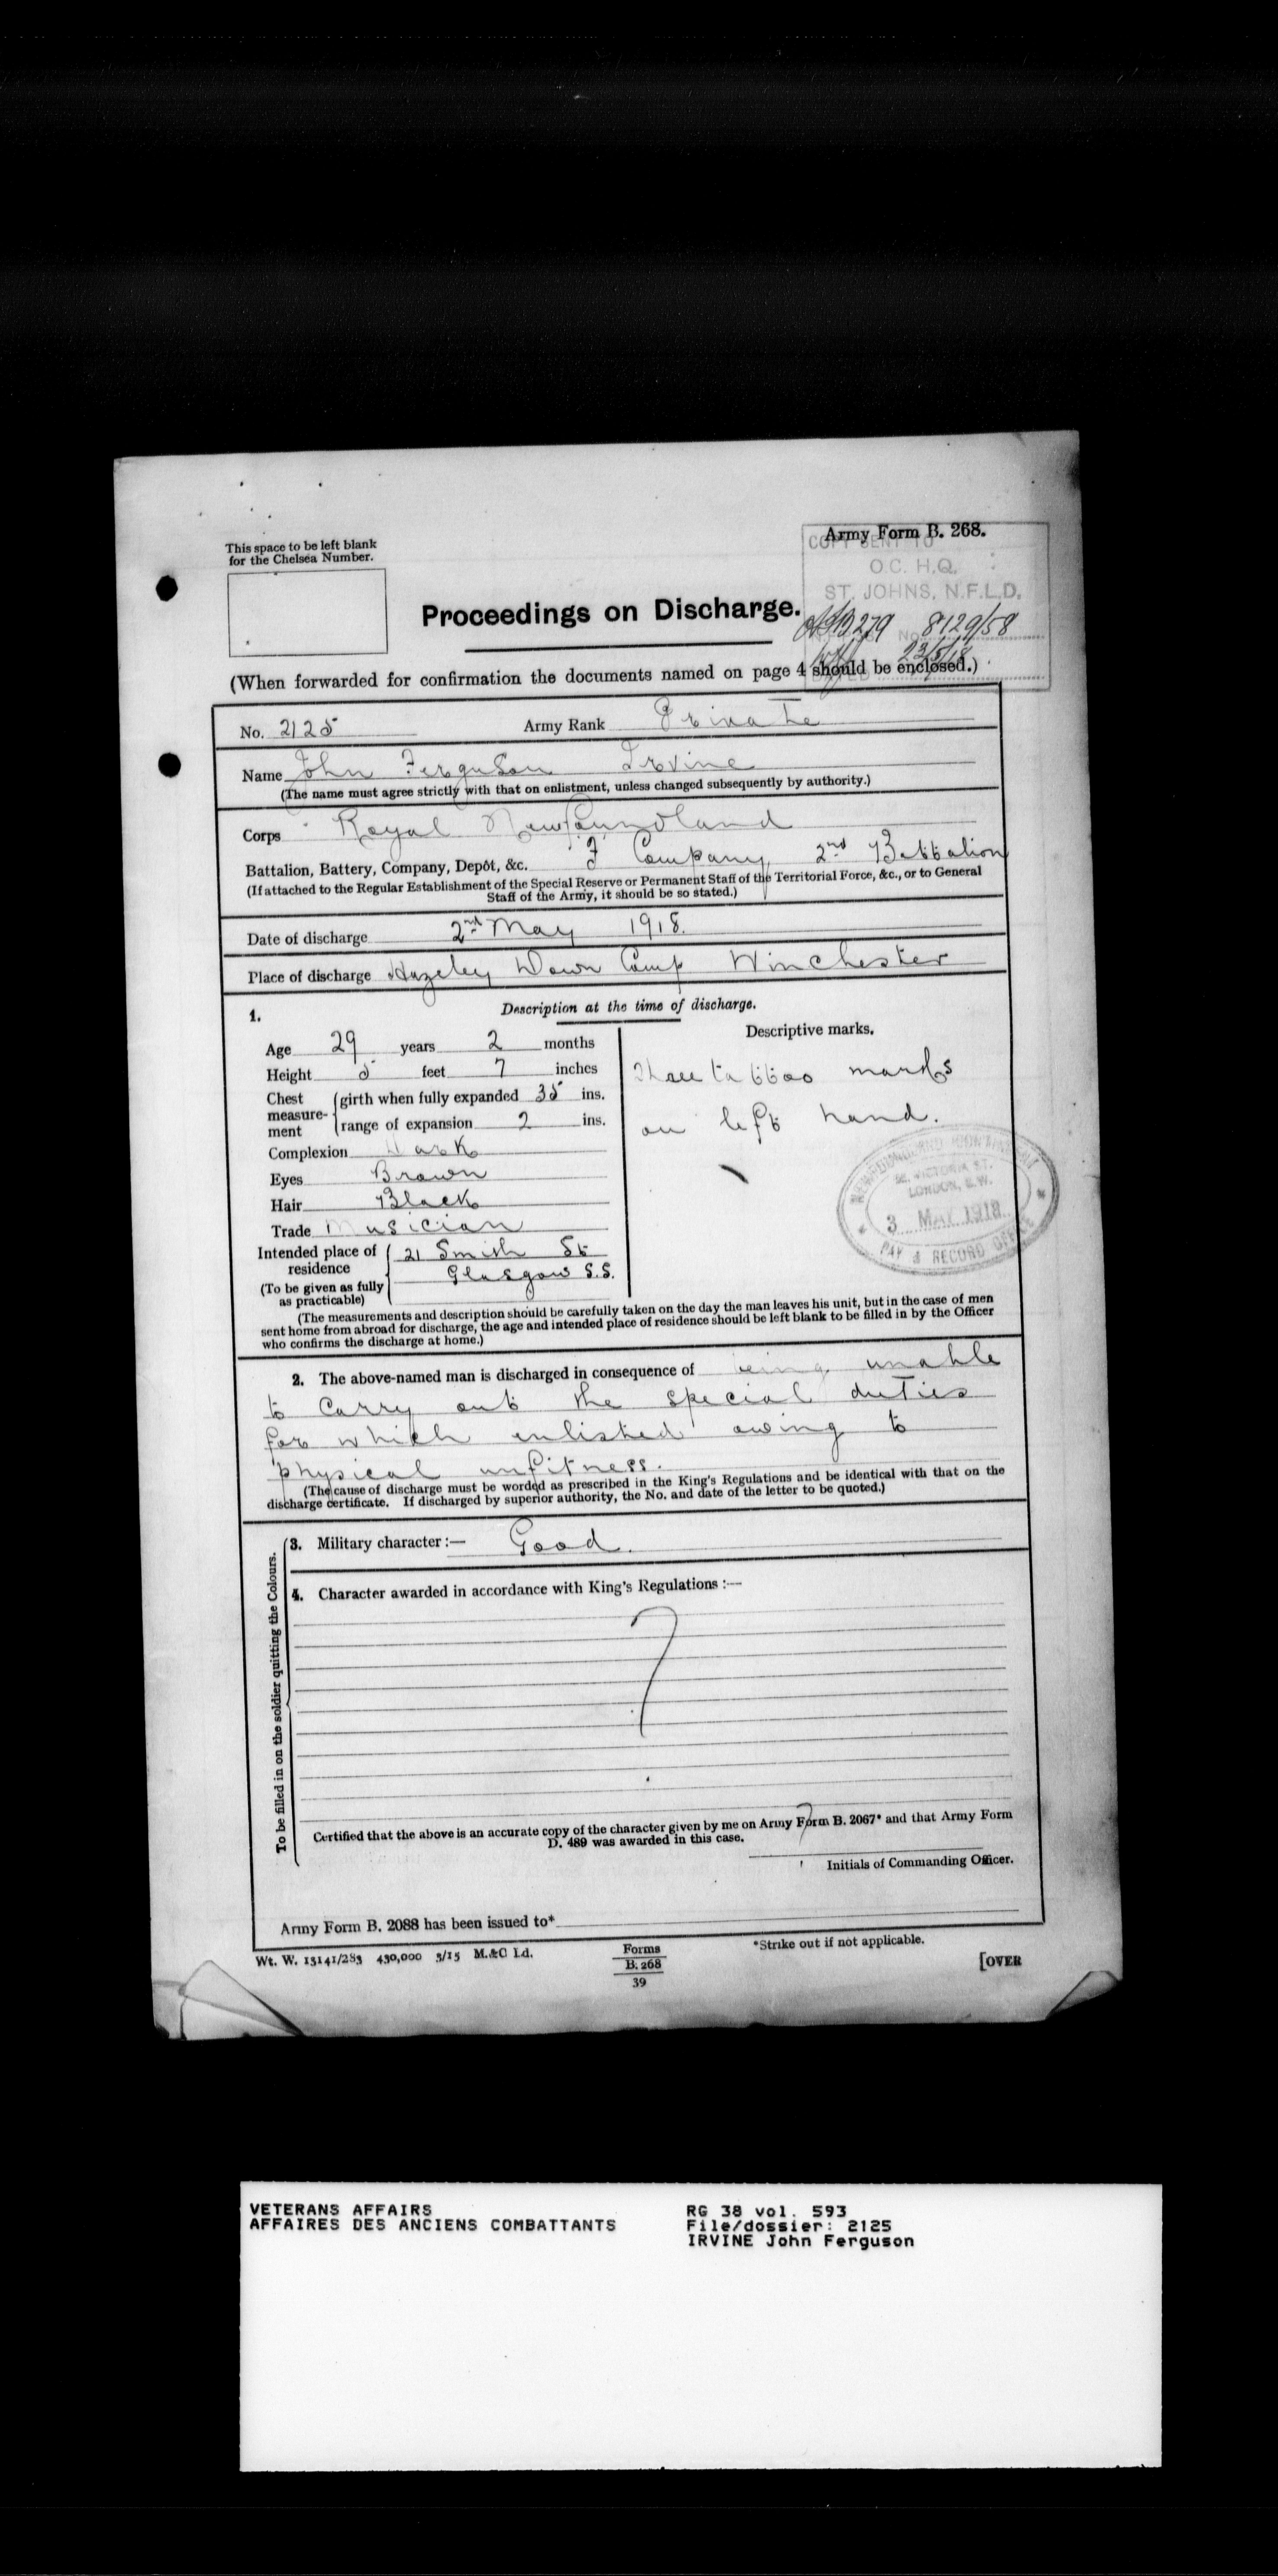 This space to be left blank
for the Chelsea Number.
Army Form B. 268.
COPY SENT TO
O.C. H.Q.
ST. JOHNS, N.F.L.D.
No. 8129/58
23/5/18
Proceedings on Discharge.
(When forwarded for confirmation the documents named on page 4 should be enclosed.)
No. 2125 Army Rank Private
Name John Ferguson Irvine
(The name must agree strictly with that on enlistment, unless changed subsequently by authority.)
Corps Royal Newfoundland
Battalion, Battery, Company, Depôt, &c. F Company, 2nd Battalion
(If attached to the Regular Establishment of the Special Reserve or Permanent Staff of the Territorial Force, &c., or to General
Staff of the Army, it should be so stated.)
Date of discharge 2nd May 1918.
Place of discharge Hazeley Down Camp Winchester
1. Description at the time of discharge.
Age 29 years 2 months
Height 5 feet 7 inches
Chest measure-ment girth when fully expanded 35 ins.
range of expansion 2 ins.
Complexion Dark
Eyes Brown
Hair Black
Trade Musician
Intended place of residence 21 Smith St
Glasgow S.S.
(To be given as fully
as practicable)
Descriptive marks.
Three tattoo marks
on left hand.
NEWFOUNDLAND CONTINGENT
58, VICTORIA ST.
LONDON, S.W.
3 MAY 1918
PAY & RECORD OFFICE
(The measurements and description should be carefully taken on the day the man leaves his unit, but in the case of men
sent home from abroad for discharge, the age and intended place of residence should be left blank to be filled in by the Officer
who confirms the discharge at home.)
2. The above-named man is discharged in consequence of being unable
to carry out the special duties
for which enlisted owing to
physical unfitness.
(The cause of discharge must be worded as prescribed in the King's Regulations and be identical with that on the
discharge certificate. If discharged by superior authority, the No. and date of the letter to be quoted.)
To be filled in on the soldier quitting the Colours.
3. Military character :— Good.
4. Character awarded in accordance with King's Regulations :—
Certified that the above is an accurate copy of the character given by me on Army Form B. 2067* and that Army Form
D. 489 was awarded in this case.
Initials of Commanding Officer.
Army Form B. 2088 has been issued to*
Wt. W. 13141/283 430,000 3/15 M.&C Ld.
Forms
B. 268
39
*Strike out if not applicable.
[OVER
VETERANS AFFAIRS
AFFAIRES DES ANCIENS COMBATTANTS
RG 38 vol. 593
File/dossier: 2125
IRVINE John Ferguson